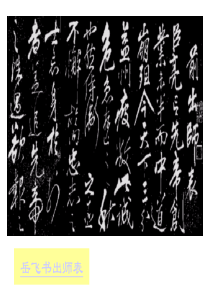 前出師表
臣亮言先帝創
業未半而中道
崩殂今天下三分
益州疲敝此誠
危急存亡之
也然侍衛之臣
不懈於内忠志之
士忘身於外
者蓋追先帝
之殊遇欲報之
岳飞书出师表